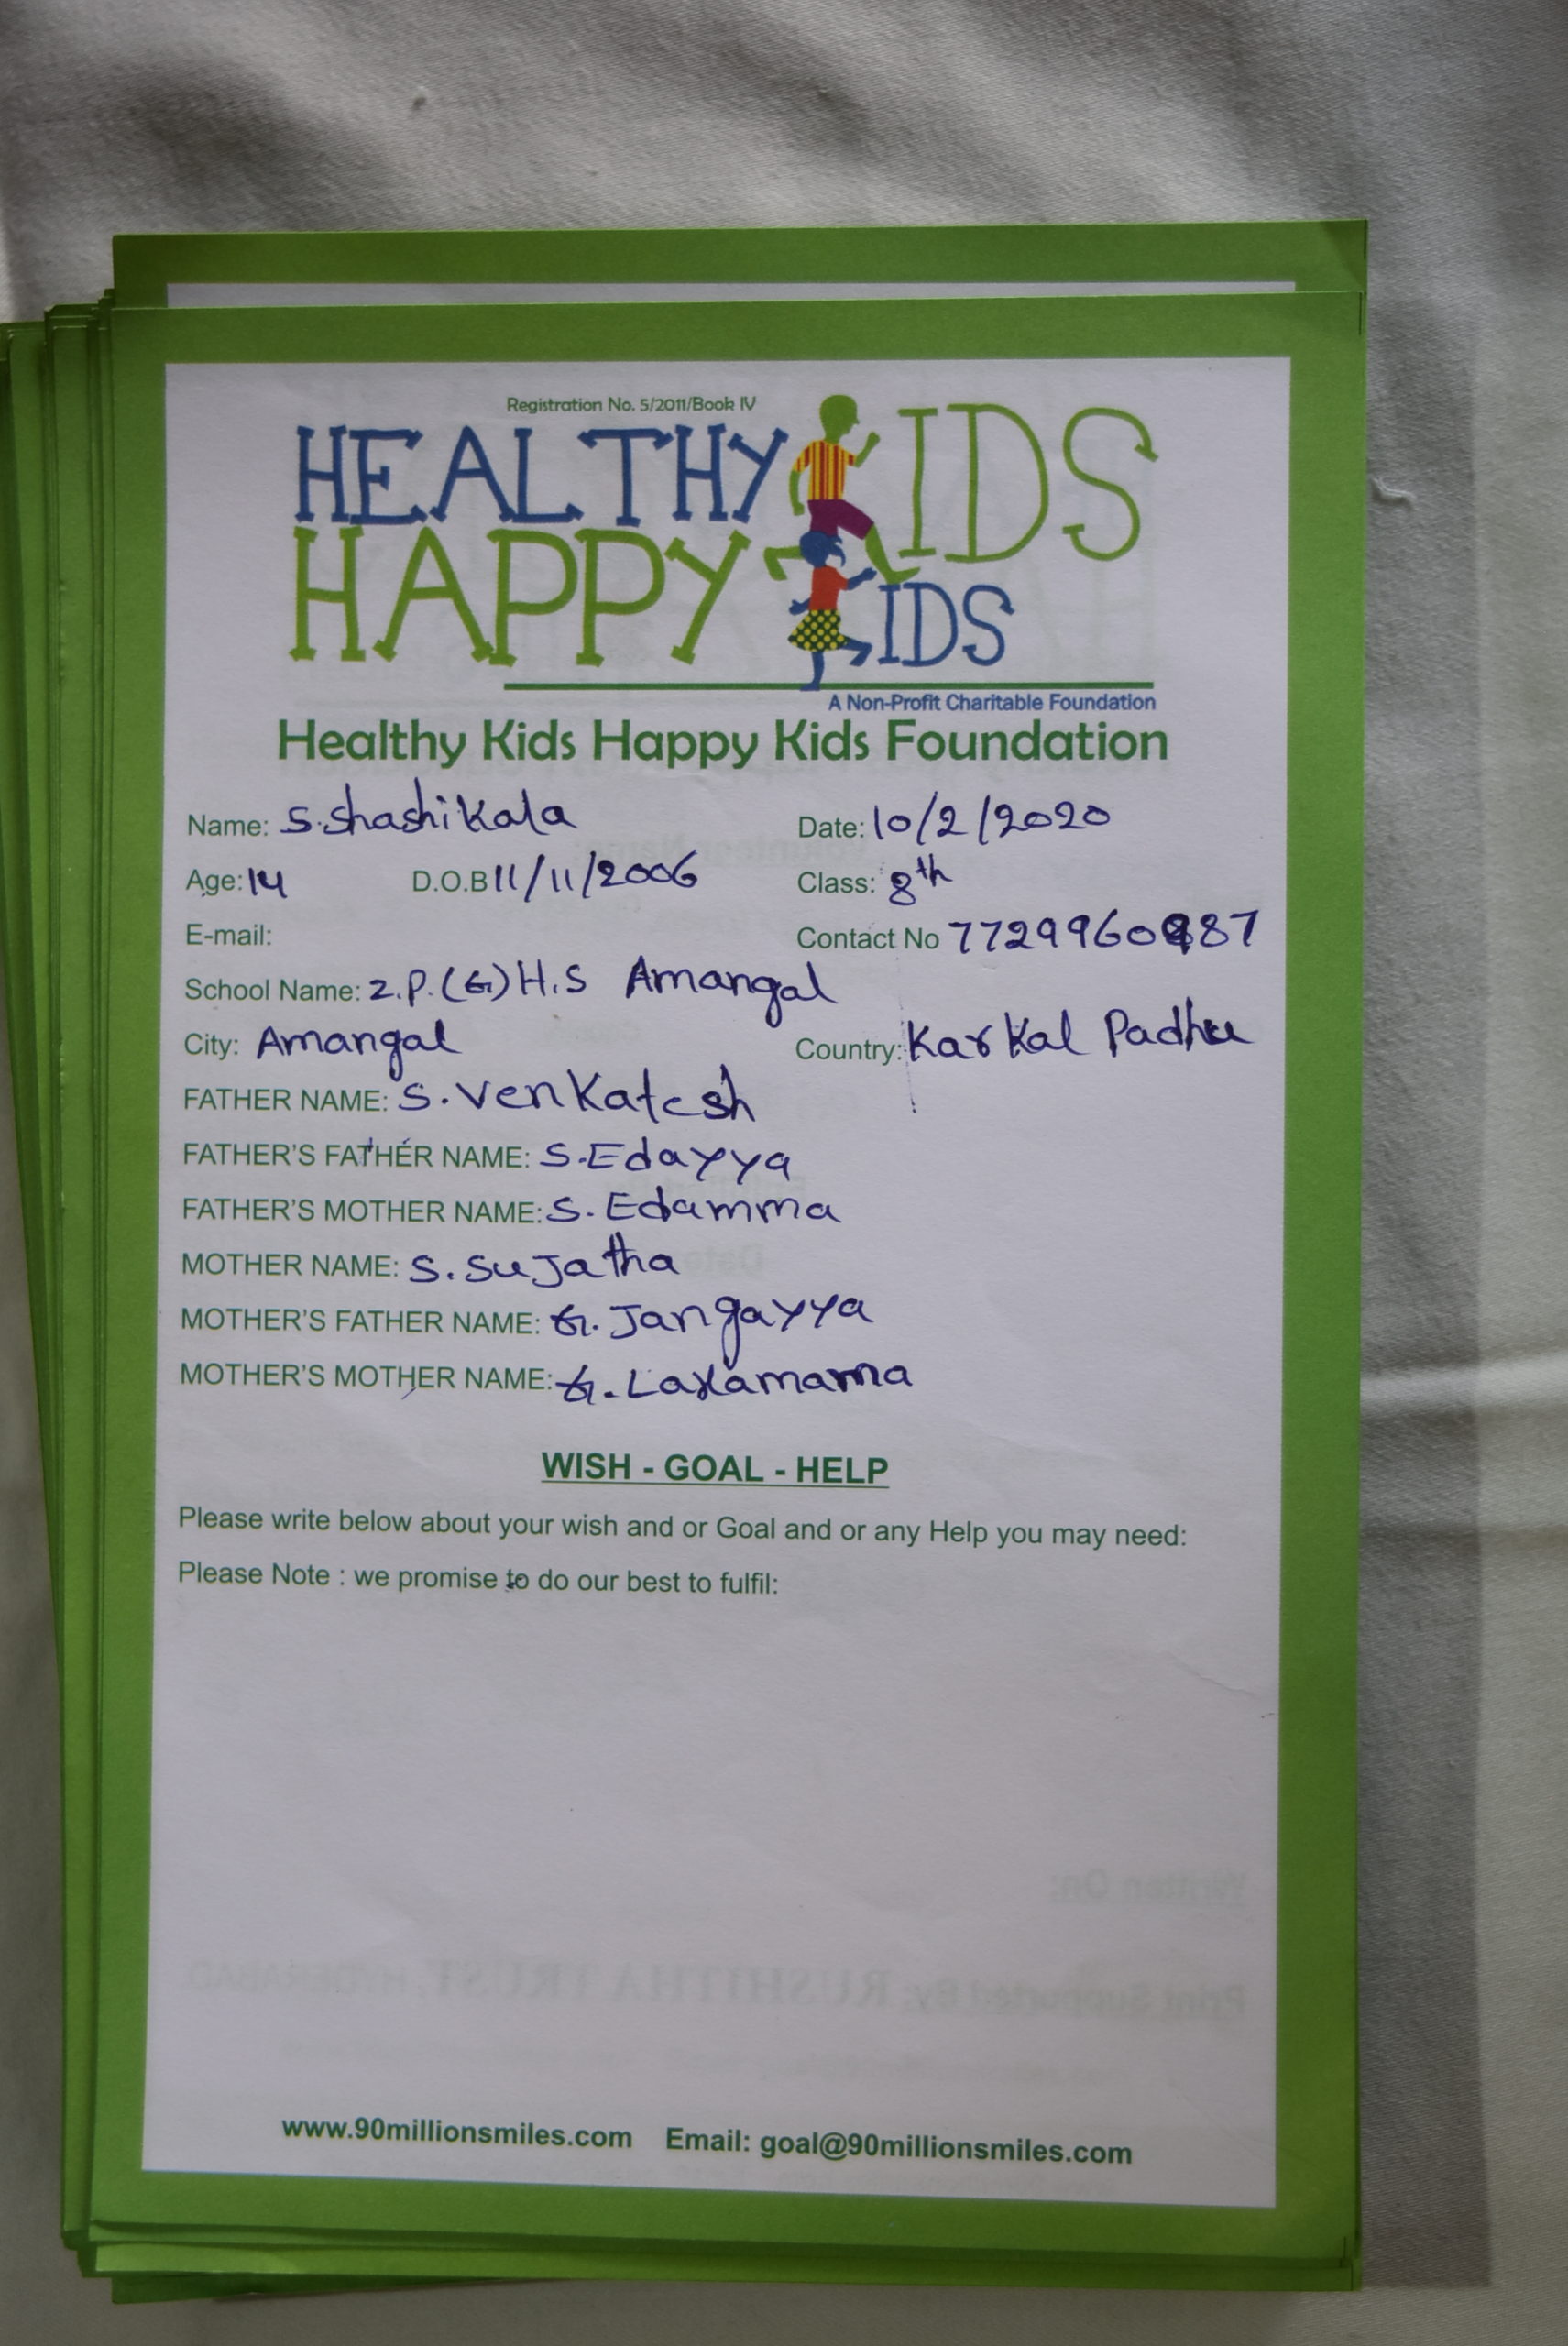 Registration No. 5/2011/Book IV
HEALTHY KIDS
HAPPY KIDS
A Non-Profit Charitable Foundation
Healthy Kids Happy Kids Foundation
Name: S.Shashikala Date: 10/2/2020
Age: 14 D.O.B 11/11/2006 Class: 8th
E-mail: Contact No 7729960987
School Name: Z.P.(G)H.S Amangal
City: Amangal Country: Karkal Padhu
FATHER NAME: S.Venkatesh
FATHER'S FATHER NAME: S.Edayya
FATHER'S MOTHER NAME: S.Edamma
MOTHER NAME: S.Sujatha
MOTHER'S FATHER NAME: G.Jangayya
MOTHER'S MOTHER NAME: G.Laxamama
WISH - GOAL - HELP
Please write below about your wish and or Goal and or any Help you may need:
Please Note : we promise to do our best to fulfil:
Written On:
Print Supported By: RUSHITHA TRUST, HYDERABAD
www.90millionsmiles.com Email: goal@90millionsmiles.com